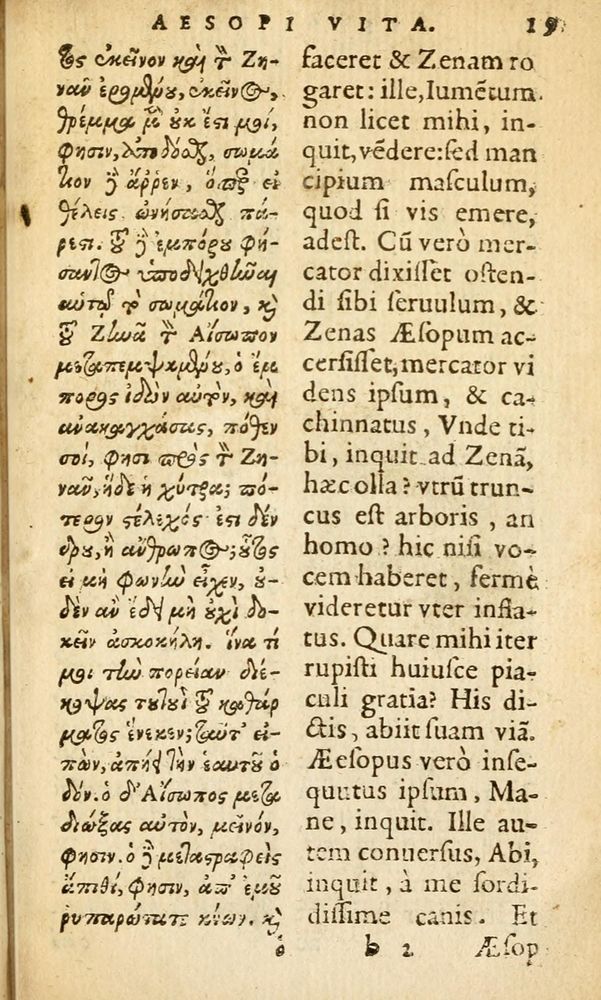 AESOPI VITA. 19
τος ἐκεῖνον καὶ τὸν Ζη-
νᾶν ἐρομένου, ἐκεῖνος,
θρέμμα μὲν οὐκ ἔστι μοι,
φησὶν, ἀποδόσθαι, σωμά
τιον δὲ ἄρρεν, ὅπερ εἰ
θέλεις ὠνήσασθαι πά-
ρεστι. τοῦ δὲ ἐμπόρου φή-
σαντος ὑποδειχθῆναι
αὐτῷ τὸ σωμάτιον, καὶ
τοῦ Ζηνᾶ τὸν Αἴσωπον
μεταπεμψαμένου, ὁ ἔμ
πορος ἰδὼν αὐτὸν, καὶ
ἀνακαγχάσας, πόθεν
σοὶ, φησὶ πρὸς τὸν Ζη-
νᾶν, ἥδε ἡ χύτρα; πό-
τερον στέλεχός ἐστι δέν
δρου, ἢ ἄνθρωπος; οὗτος
εἰ μὴ φωνὴν εἶχεν, οὐ-
δὲν ἂν ἔδει μὴ οὐχὶ δο-
κεῖν ἀσκοκήλη. ἵνα τί
μοι τὴν πορείαν διέ-
κοψας τουτουῒ τοῦ καθάρ
ματος ἕνεκεν; ταῦτ' εἰ-
πὼν, ἀπῄει τὴν ἑαυτοῦ ὁ
δόν. ὁ δ' Αἴσωπος μετα
διώξας αὐτὸν, μεῖνόν,
φησιν. ὁ δὲ μεταστραφεὶς
ἄπιθί, φησιν, ἀπ' ἐμοῦ
ῥυπαρώτατε κύων. καὶ
ὁ
faceret & Zenam ro
garet: ille, Iumẽtum
non licet mihi, in-
quit, vẽdere: sed man
cipium masculum,
quod si vis emere,
adest. Cũ verò mer-
cator dixisset osten-
di sibi seruulum, &
Zenas Æsopum ac-
cersisset, mercator vi
dens ipsum, & ca-
chinnatus, Vnde ti-
bi, inquit ad Zenã,
hæc olla? vtrũ trun-
cus est arboris, an
homo? hic nisi vo-
cem haberet, fermè
videretur vter infla-
tus. Quare mihi iter
rupisti huiusce pia-
culi gratia? His di-
ctis, abiit suam viã.
Æesopus verò inse-
quutus ipsum, Ma-
ne, inquit. Ille au-
tem conuersus, Abi,
inquit, à me sordi-
dissime canis. Et
b 2 Æsop